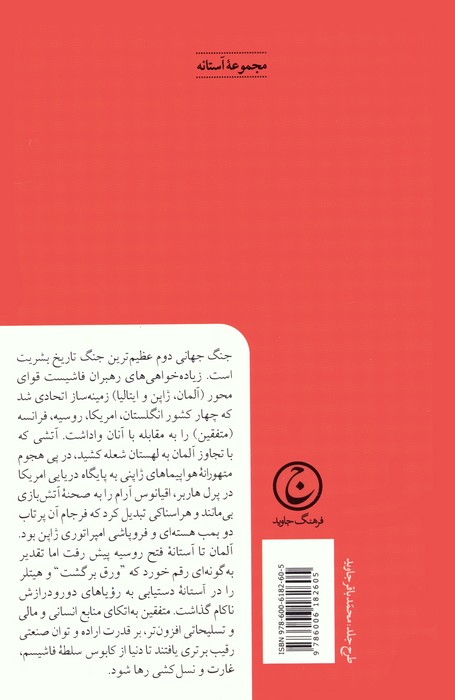 مجموعهٔ آستانه
جنگ جهانی دوم عظیم‌ترین جنگ تاریخ بشریت
است. زیاده‌خواهی‌های رهبران فاشیست قوای
محور (آلمان، ژاپن و ایتالیا) زمینه‌ساز اتحادی شد
که چهار کشور انگلستان، امریکا، روسیه، فرانسه
(متفقین) را به مقابله با آنان واداشت. آتشی که
با تجاوز آلمان به لهستان شعله کشید، در پی هجوم
متهورانهٔ هواپیماهای ژاپنی به پایگاه دریایی امریکا
در پرل هاربر، اقیانوس آرام را به صحنهٔ آتش‌بازی
بی‌مانند و هراسناکی تبدیل کرد که فرجام آن پرتاب
دو بمب هسته‌ای و فروپاشی امپراتوری ژاپن بود.
آلمان تا آستانهٔ فتح روسیه پیش رفت اما تقدیر
به‌گونه‌ای رقم خورد که "ورق برگشت" و هیتلر
را در آستانهٔ دستیابی به رؤیاهای دورودرازش
ناکام گذاشت. متفقین به‌اتکای منابع انسانی و مالی
و تسلیحاتی افزون‌تر، بر قدرت اراده و توان صنعتی
رقیب برتری یافتند تا دنیا از کابوس سلطهٔ فاشیسم،
غارت و نسل‌کشی رها شود.
ج
فرهنگ جاوید
ISBN 978-600-6182-60-5
9 786006 182605
طرح جلد: محمدباقر جاوید